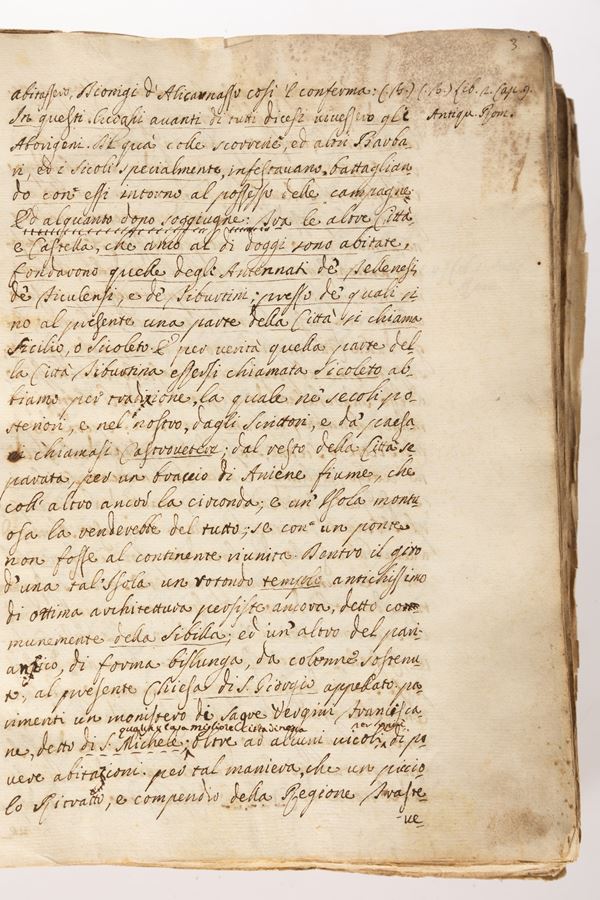 3
abitassero, Dionigi d'Alicarnasso così l' conferma: (16.)
(16.) Lib. 1. Cap. 9.
Antiqu. Rom.
In questi luoghi avanti di tutti dicesi vivessero gli
Aborigeni. Di quà colle scorrerie, ed altri Barba-
ri, ed i Sicoli specialmente, infestavano, battaglian-
do con essi intorno al possesso delle campagne:
Ed alquanto dopo soggiugne: Tra le altre Città,
e Castella, che anco al dì d'oggi sono abitate,
fondarono quelle degli Antennati de' Tellenesi,
de' Ficulensi, e de' Tiburtini; presso de' quali si-
no al presente una parte della Città si chiama
Sicilio, o Sicoleto. E per verità quella parte del-
la Città Tiburtina essersi chiamata Sicoleto ab-
biamo per tradizione, la quale ne' secoli po-
steriori, e nel nostro, dagli Scrittori, e da' paesa-
ni chiamasi Castrovetere; dal resto della Città se-
parata, per un braccio di Aniene fiume, che
coll' altro ancor la circonda; e un' Isola montu-
osa la renderebbe del tutto; se con un ponte
non fosse al continente riunita. Dentro il giro
d'una tal' Isola un rotondo tempio antichissimo
di ottima architettura persiste ancora, detto com-
munemente della Sibilla; ed un' altro del pari
antico, di forma bislunga, da colonne sostenu-
to, al presente Chiesa di S. Giorgio appellato. pa-
rimenti un monistero di Sagre Vergini Francesca-
ne, detto di S. Michele; oltre ad alcuni vicoli, di po-
vere abitazioni. per tal maniera, che un picco-
lo Ritratto, e compendio della Regione Traste-
ve-